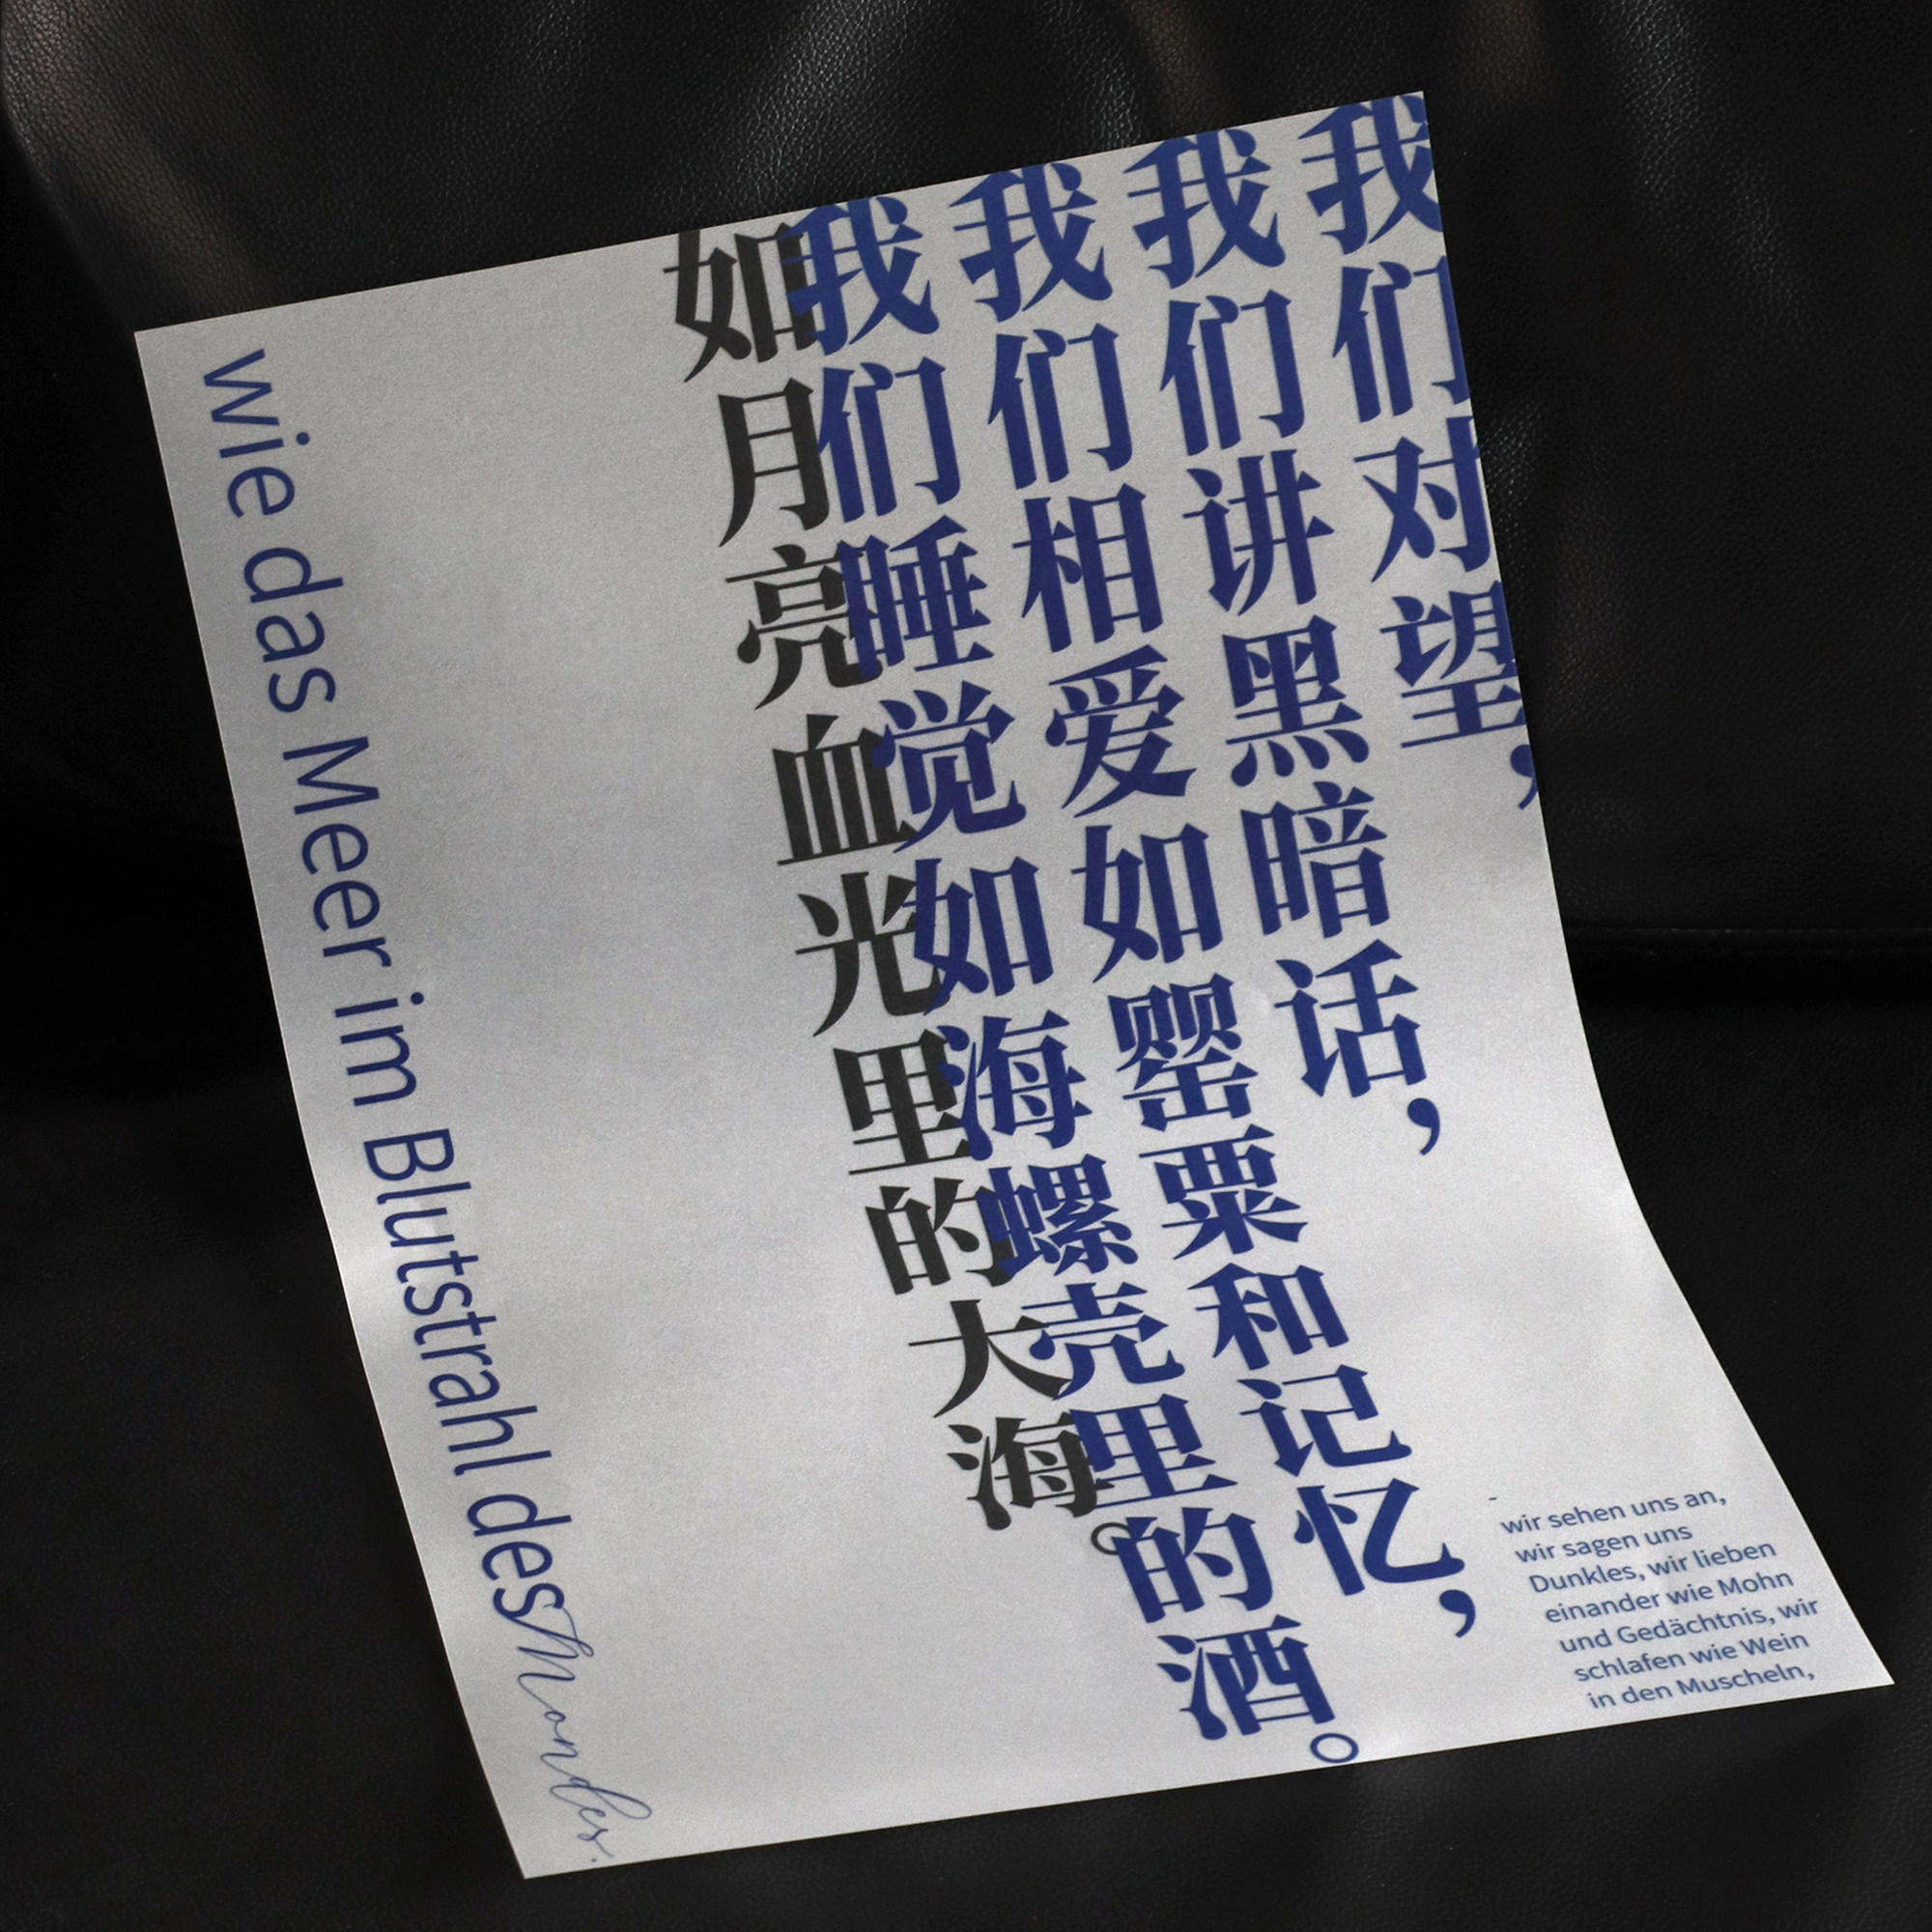 我们对望，
我们讲黑暗话，
我们相爱如罂粟和记忆，
我们睡觉如海螺壳里的酒。
如月亮血光里的大海。
wie das Meer im Blutstrahl des Mondes.
-
wir sehen uns an,
wir sagen uns
Dunkles, wir lieben
einander wie Mohn
und Gedächtnis, wir
schlafen wie Wein
in den Muscheln,